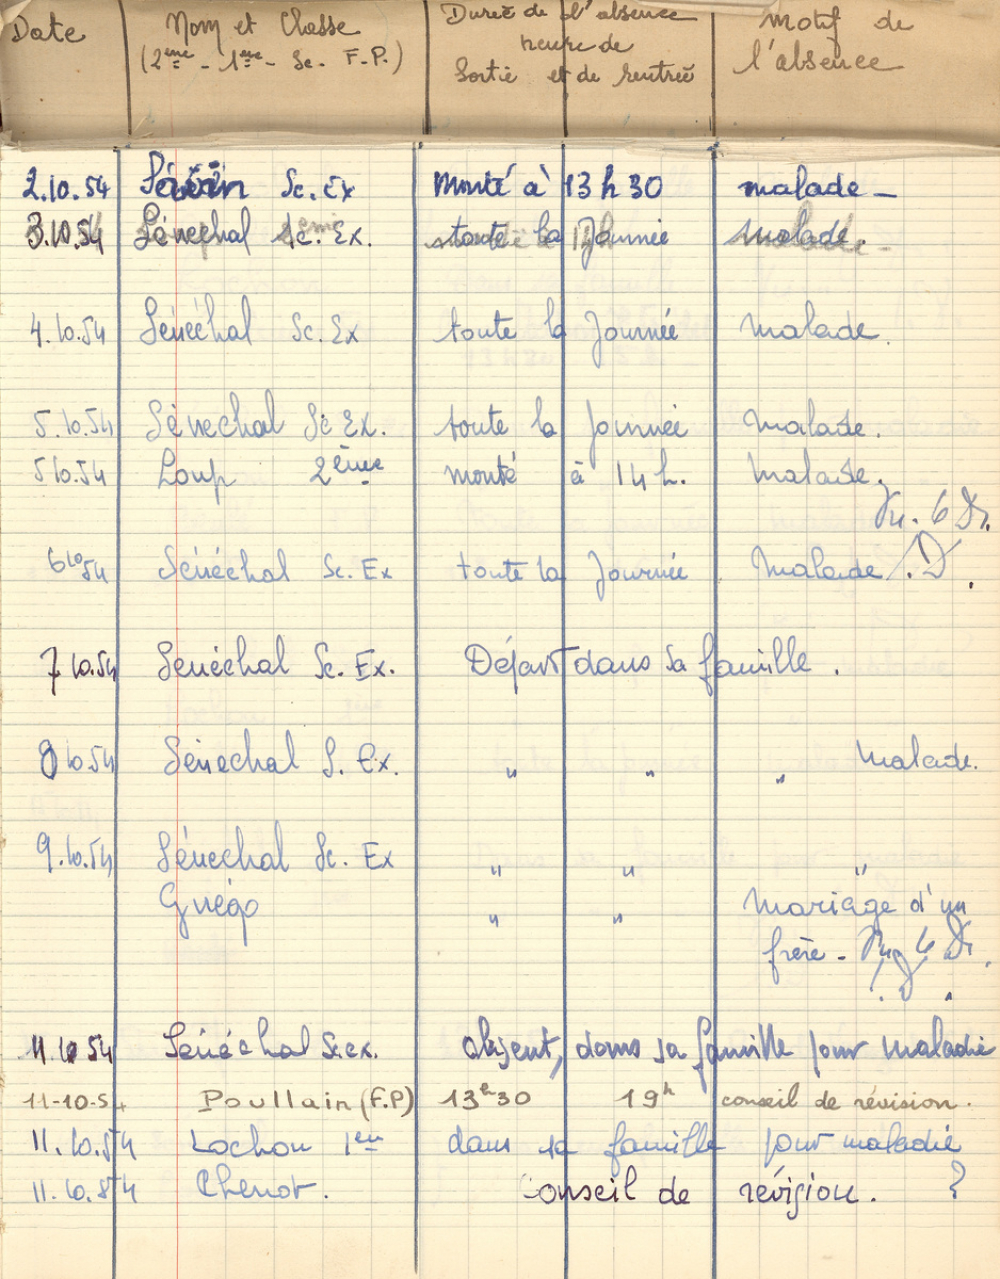 Date Nom et Classe Durée de l'absence Motif de
(2ème - 1ère - Sc. F.P.) heure de l'absence
Sortie et de rentrée
2.10.54 Sc. Ex monté à 13 h 30 malade -
3.10.54 Sénéchal Sc. Ex. toute la Journée malade.
4.10.54 Sénéchal Sc. Ex toute la Journée malade.
5.10.54 Sénechal Sc Ex. toute la Journée malade.
5 10.54 Loup 2ème monté à 14 h. malade.
6 10 54 Sénéchal Sc. Ex toute la Journée malade
7 10.54 Sénéchal Sc. Ex. Départ dans sa famille.
8 10.54 Sénechal S. Ex. " " " malade.
9.10.54 Sénechal Sc. Ex " " "
Guégo " " mariage d'un
frère -
11.10 54 Sénéchal Sc. ex. absent, dans sa famille pour maladie
11-10-54 Poullain (F.P) 13h30 19h conseil de révision.
11.10.54 Lochou 1ère dans sa famille pour maladie
11.10.54 Chenot. Conseil de révision. ?